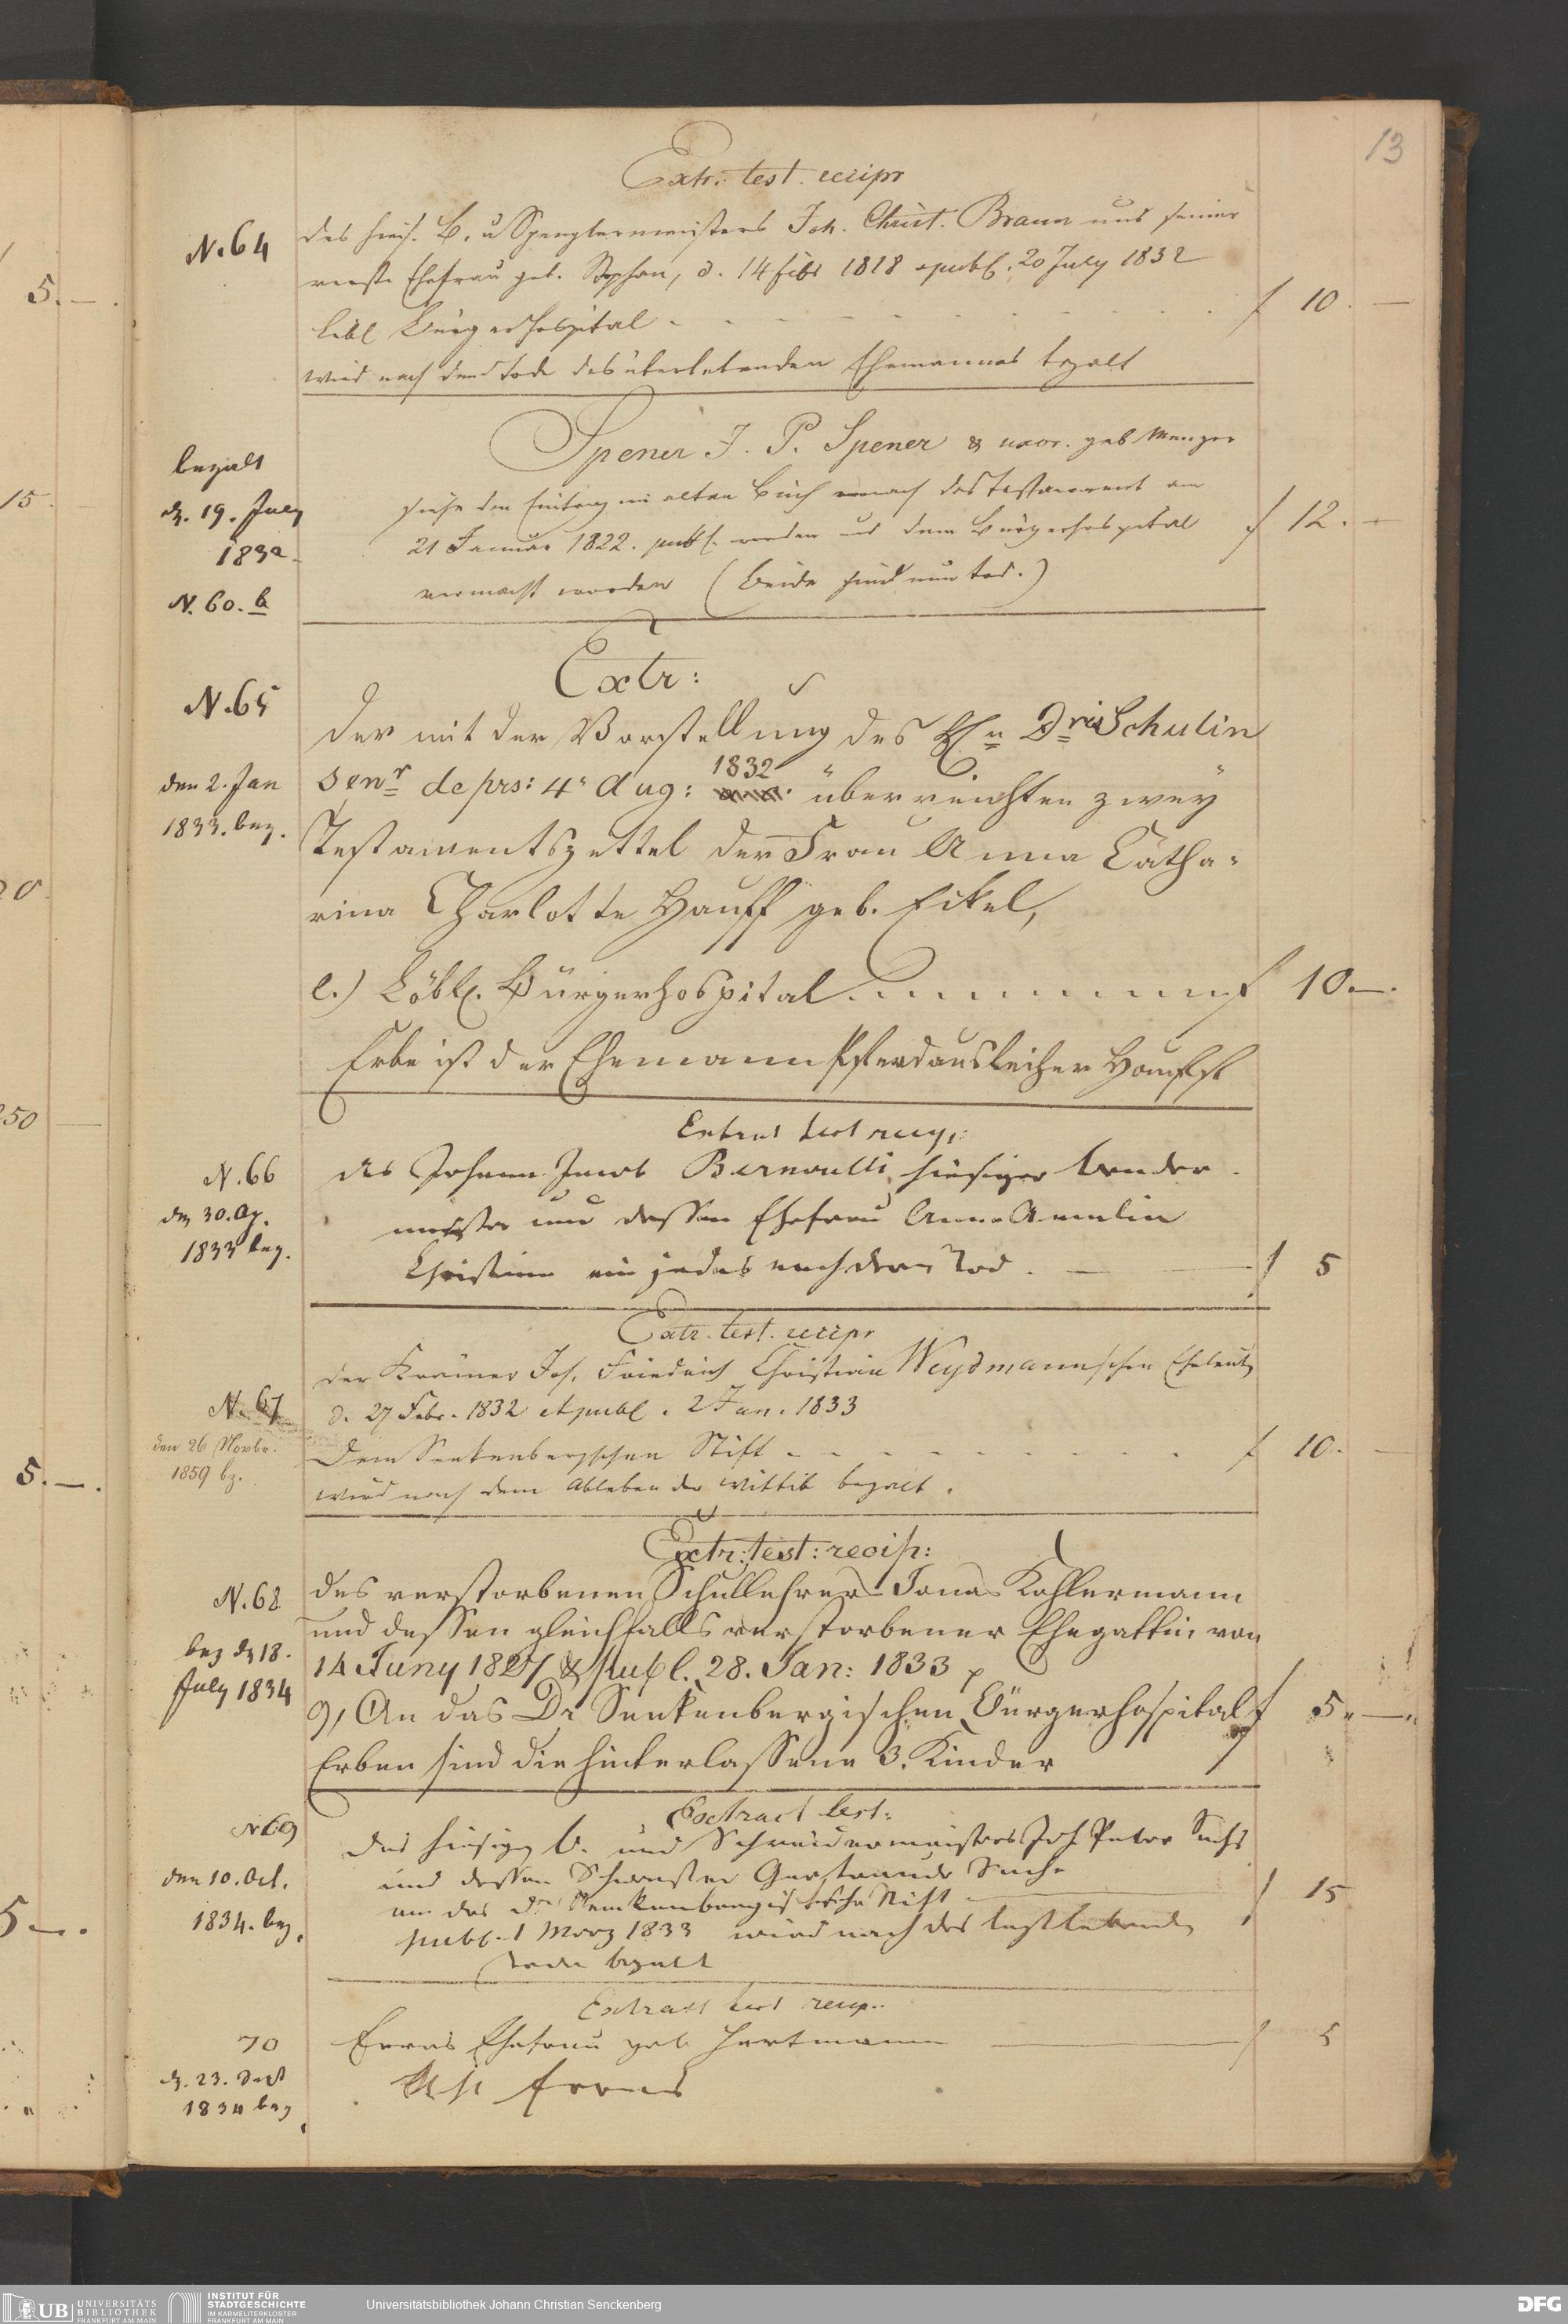 13
Extr. test. recipr
N. 64
des hies. B. u Spenglermeisters Joh. Christ. Braun und seiner
Ehefrau geb. Stephan, d. 14 febr 1818 publ. 20 July 1832
löbl Bürgerhospital - - - f 10. —
wird nach dem Tode des überlebenden Ehemannes bezalt
Spener J. P. Spener & uxor. geb Menger
bezalt
d. 19. July
1832.
N. 60. b
siehe den Eintrag im alten Buch das Testament am
21 Januar 1822. publ. worden und dem Bürgerhospital f 12. —
vermacht worden (beide sind nun tod.)
Extr:
N. 65
der mit der Vorstellung des Hn Dris Schulin
den 2. Jan
1833. bez.
Senr de prs: 4. Aug: 1832 überreichten zwey
Testamentszettel der Frau Anna Catha-
rina Charlotte Hauff geb. Eckel,
e.) Löbl. Bürgerhospital. f 10. —.
Erbe ist der Ehemann Pferdausleiher Hauff
Extract test recip:
N. 66
den 30. Ap.
1833 bez.
des Johann Jacob Bernoulli, hiesiger bender-
meister und dessen Ehefrau Anna Amalia
Christina ein jedes nach dem Tod. — f 5
Extr. test. recipr
N. 67
den 26 Novbr.
1859 bz.
der Krämer Joh. Friedrich Christian Weydmannschen Eheleute
d. 27 Febr. 1832 et publ. 2 Jan. 1833
Dem Senkenbergschen Stift - - - f 10. —
wird nach dem Ableben der Wittib bezalt.
Extr: test: recip:
N. 68
bez d 18.
July 1834
des verstorbenen Schullehrers Jonas Kohlermann
und dessen gleichfalls verstorbener Ehegattin von
14 Juny 1827 & publ. 28. Jan: 1833
9, An das Dr Senkenbergischen Bürgerhospital f 5. —.
Erben sind die hinterlassene 3. Kinder
Extract test:
N 69
den 10. Oct.
1834. bez.
des hiesigen B. und Schneidermeisters Joh Peter Sachs
und dessen Schwester Gertraude Sachs
an das Dr Senkenbergische Stift — f 15
publ. 1 März 1833 wird nach des letztlebenden
Tode bezalt
Extract test recip.
70
d. 23. Dect
1834 bez
Ehefrau geb Hartmann — f 5
5. —.
15
20.
250 —
5. —.
5 —.
UB UNIVERSITÄTS BIBLIOTHEK FRANKFURT AM MAIN
INSTITUT FÜR STADTGESCHICHTE IM KARMELITERKLOSTER FRANKFURT AM MAIN
Universitätsbibliothek Johann Christian Senckenberg
DFG